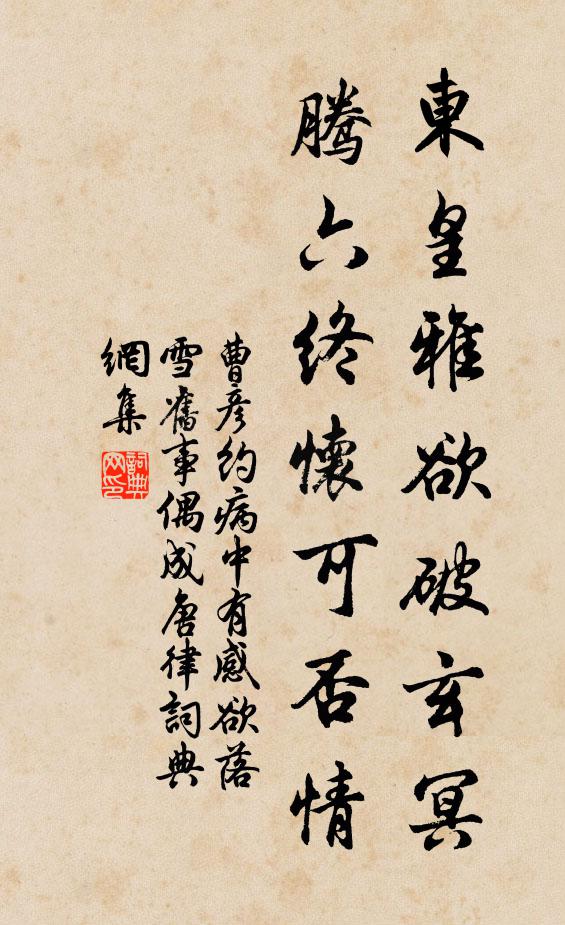 東皇雅欲破玄冥
騰六終懷可否情
曹彥約病中有感欲落
雪舊事偶成唐律詞典
網集
詞典
网印